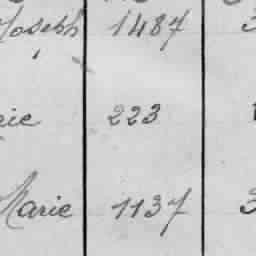 Joseph 1487 3
rie 223
Marie 1137 3